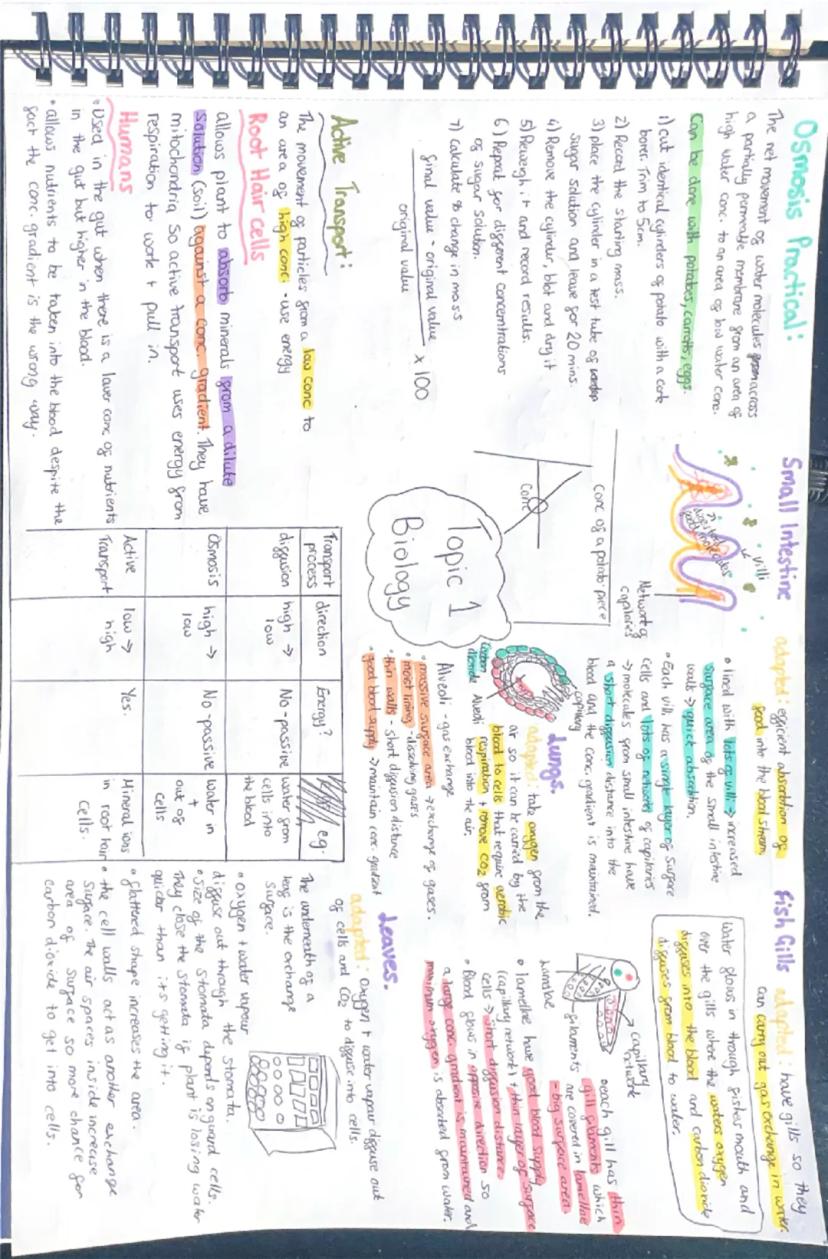 Osmosis Practical:
The net movement of water molecules across
a partially permeable membrane from an area of
high water conc. to an area of low water conc.
Can be done with potatoes, carrots, eggs.
1) Cut identical cylinders of potato with a cork
borer. Trim to 5cm.
2) Record the starting mass.
3) place the cylinder in a test tube of
sugar solution and leave for 20 mins.
4) Remove the cylinder, blot and dry it
5) Reweigh it and record results.
6) Repeat for different concentrations
of sugar solution.
7) Calculate % change in mass
final value - original value
original value
× 100
Active Transport:
The movement of particles from a low conc to
an area of high conc. - use energy
Root Hair cells
allows plant to absorb minerals from a dilute
solution (soil) against a conc. gradient. They have
mitochondria so active transport uses energy from
respiration to work + pull in.
Humans
• Used in the gut when there is a lower conc of nutrients
in the gut but higher in the blood.
• allows nutrients to be taken into the blood despite the
fact the conc. gradient is the wrong way.
Small Intestine
villi
food molecules
Network of
capillaries
adapted: efficient absorption of
food into the blood stream.
• lined with lots of villi → increased
surface area of the small intestine
walls → quick absorption.
• Each villi has a single layer of surface
cells and lots of network of capillaries
→ molecules from small intestine have
a short diffusion distance into the
blood and the conc. gradient is maintained.
conc of a potato piece
Conc
Topic 1
Biology
Lungs.
capillary
Carbon
dioxide
Alveoli
adapted: take oxygen from the
air so it can be carried by the
blood to cells that require aerobic
respiration + remove CO2 from
blood into the air.
Alveoli - gas exchange
• massive surface area → exchange of gases.
• moist lining - dissolving gases
• thin walls - short diffusion distance
• good blood supply → maintain conc. gradient
Transport process direction Energy? eg.
diffusion high → low No-passive water from cells into the blood
Osmosis high → low No-passive water in + out of cells
Active Transport low → high Yes. Mineral ions in root hair cells.
Fish Gills
adapted: have gills so they
can carry out gas exchange in water.
Water flows in through fishes mouth and
over the gills where the waters oxygen
diffuses into the blood and carbon dioxide
diffuses from blood to water.
capillary
network
lamellae
filaments
• each gill has thin
gill filaments which
are covered in lamellae
- big surface area
• lamellae have good blood supply
(capillary network) + thin layer of surface
cells → short diffusion distance
• Blood flows in opposite direction so
a large conc. gradient is maintained and
maximum oxygen is absorbed from water.
Leaves.
adapted: Oxygen + water vapour diffuse out
of cells and CO2 to diffuse into cells.
The underneath of a
leaf is the exchange
surface.
• Oxygen + water vapour
diffuse out through the stomata.
• Size of the stomata depends on guard cells.
They close the stomata if plant is losing water
quicker than its getting it.
• flattened shape increases the area.
• the cell walls act as another exchange
surface. The air spaces inside increase
area of surface so more chance for
carbon dioxide to get into cells.